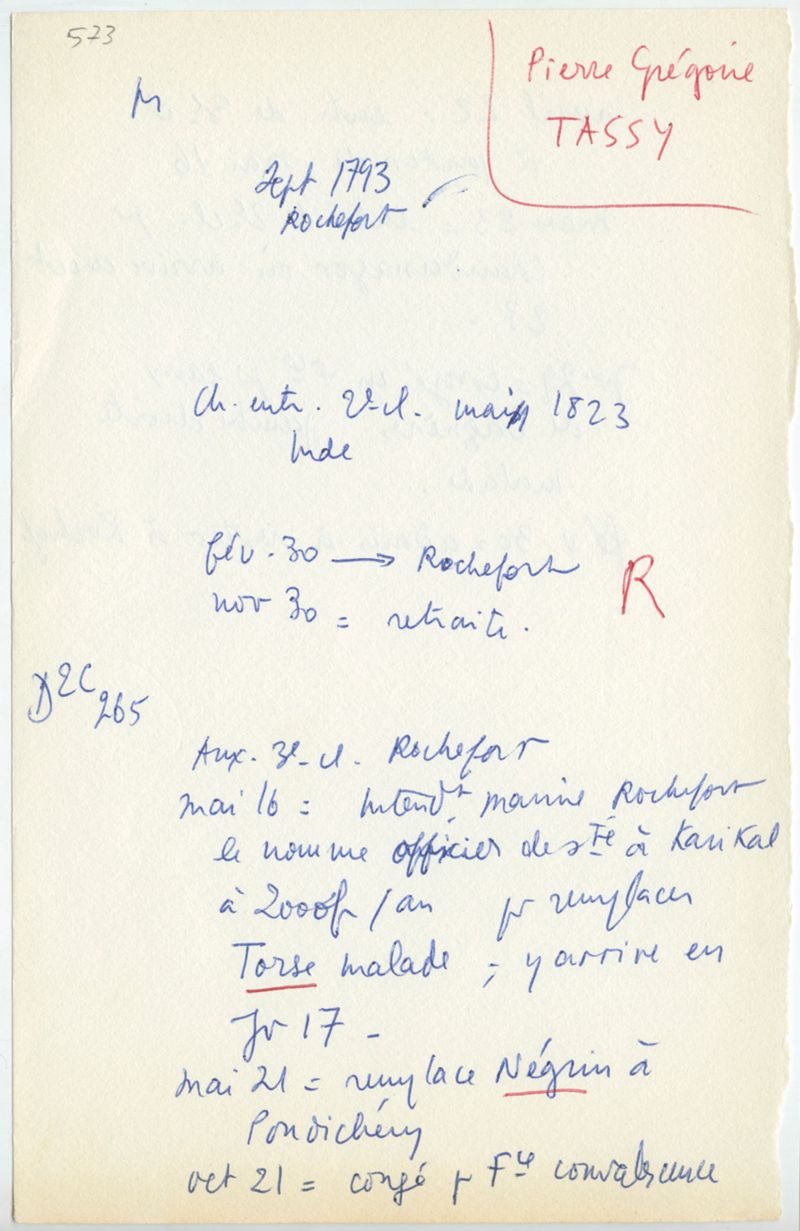 573
Pierre Grégoire
TASSY
M
Sept 1793
Rochefort
Ch. entr. 2e cl. mai 1823
Inde
fév. 30 → Rochefort
nov 30 = retraite.
R
D2C
265
Aux. 3e cl. Rochefort
mai 16 = Intendt marine Rochefort
le nomme officier de sté à Karikal
à 2000f/an pr remplacer
Torse malade ; y arrive en
Jv 17 -
mai 21 = remplace Négrin à
Pondichéry
oct 21 = congé pr Fce convalescence